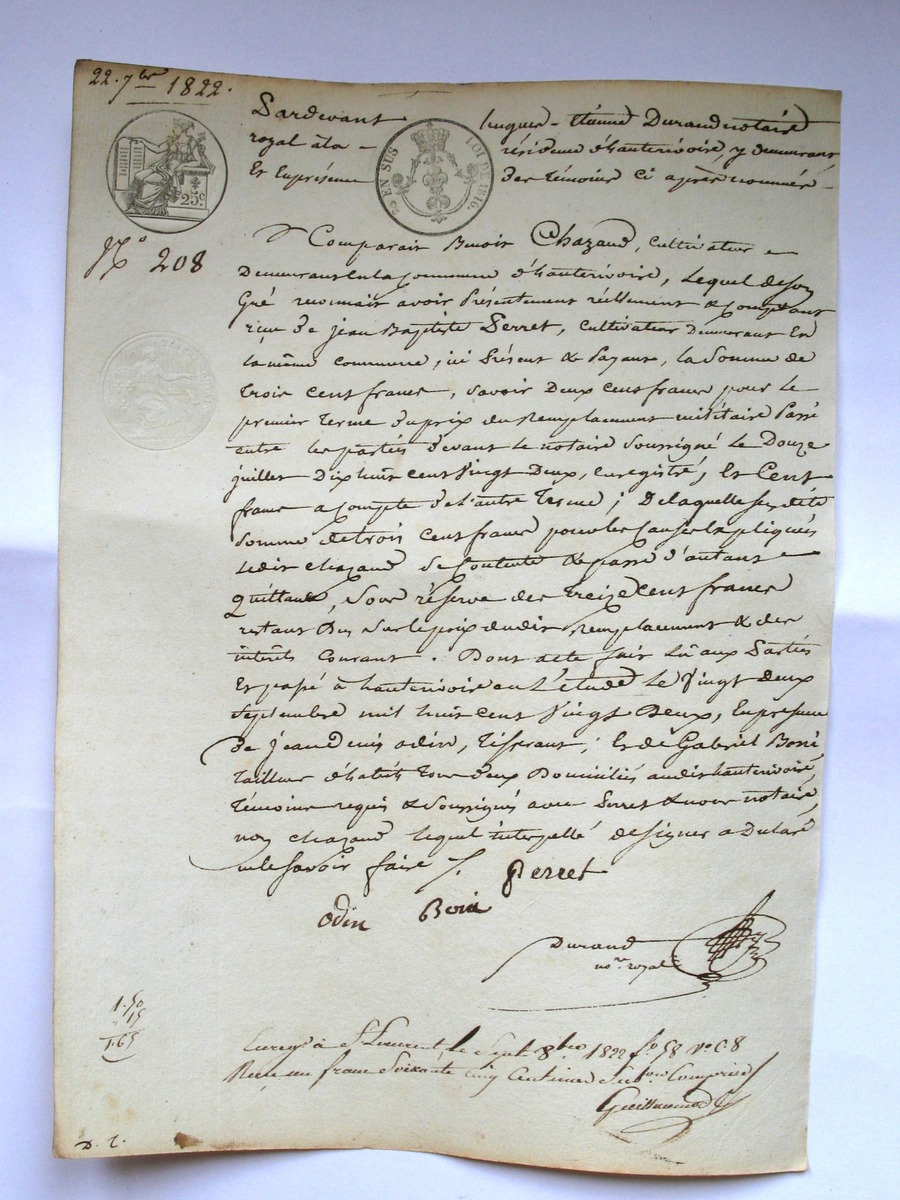 22. 7bre 1822.
Pardevant hugues - Etienne Durand notaire
royal à la résidence d'hauterivoire, y demeurant
Et En présence des témoins ci après nommés -
25c
2/10 EN SUS LOI DE 1816.
N° 208
Comparait Benoit Chazaud, cultivateur
Demeurant en la commune d'hauterivoire, Lequel de son
Gré reconnait avoir Présentement réellement & comptant
reçu De jean Baptiste Perret, cultivateur demeurant En
la même commune, ici Présent & Payant, la Somme de
trois cent francs, Savoir Deux cent francs pour le
premier terme du prix du Remplacement militaire Passé
entre les parties devant le notaire Soussigné le Douze
juillet Dix huit cent Vingt Deux, enregistré, Et Cent
francs a compte de l'autre terme; De laquelle susdite
Somme de trois cent francs pour les causes Expliquées
Ledit chazaud Se Contente & passe d'autant
Quittance, Sous réserve des treize cent francs
restant Dus Sur le prix dudit Remplacement & des
intérêts Courant. Dont acte fait Lu aux Parties
Et passé à hauterivoire en L'étude Le Vingt deux
Septembre mil huit cent Vingt Deux, En présence
De jean denis odin, tisserant, Et de Gabriel Boni
tailleur d'habits tous deux Domiciliés audit hauterivoire,
témoins requis & Soussignés avec Perret & nous notaire,
non chazaud lequel interpellé de signer a Déclaré
ne le Savoir faire /.
Perret
odin Boni
Durand
nore royal
1.50
15
1.65
Enregé à St Laurent le Sept 8bre 1822 fo 58 Vo C. 8
Reçu un franc Soixante cinq Centimes Subon Comprise
Guillaumod
D. t.